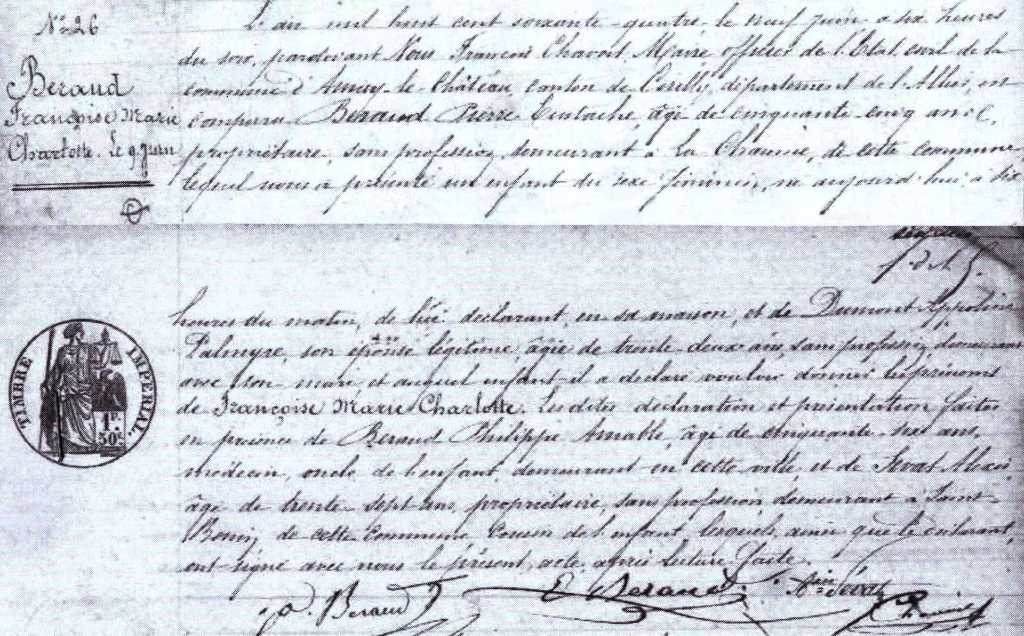 N° 26
Beraud
Françoise Marie
Charlotte. Le 9 Juin
L'an mil huit cent soixante-quatre, le neuf juin, a six heures
du soir, pardevant Nous François Chavoit, Maire, officier de l'Etat civil de la
commune d'Ainay-le-Château, canton de Cerilly, département de l'Allier, est
comparu Beraud Pierre Eustache, âgé de cinquante-cinq ans,
propriétaire, sans profession, demeurant à la Chaume, de cette commune,
lequel nous a présenté un enfant du sexe féminin, né aujourd'hui à six
heures du matin, de lui déclarant, en sa maison, et de Dumont Appoline
Palmyre, son épouse légitime, âgée de trente-deux ans, sans profession, demeurant
avec son mari et auquel enfant il a déclaré vouloir donner les prénoms
de Françoise Marie Charlotte. Les dites déclaration et présentation faites
en présence de Beraud Philippe Amable, âgé de cinquante-six ans,
médecin, oncle de l'enfant, demeurant en cette ville et de Sevat Alexis
âgé de trente-sept ans, propriétaire, sans profession, demeurant à Saint-
Benin, de cette commune, cousin de l'enfant, lesquels, ainsi que le déclarant,
ont signé avec nous le présent acte, après lecture faite.
TIMBRE IMPERIAL.
1F. 50c
a. Beraud
E Beraud
Sevat